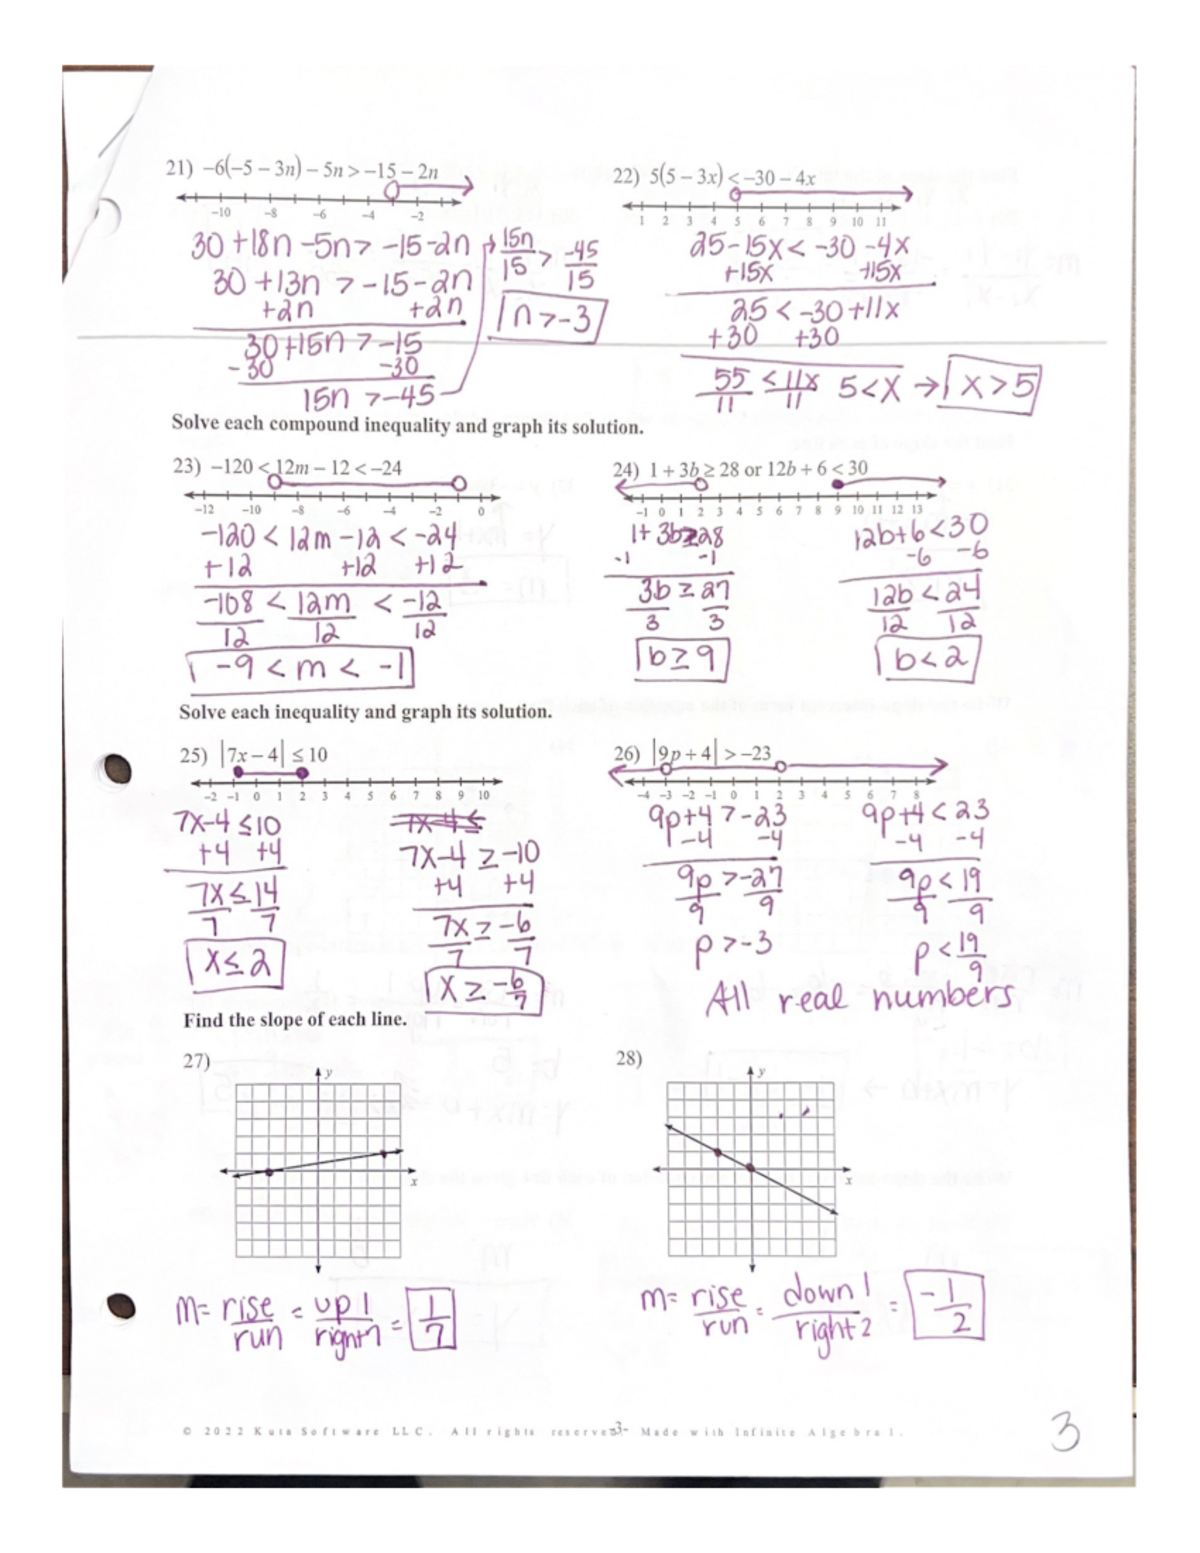 21) -6(-5 - 3n) - 5n > -15 - 2n
-10 -8 -6 -4 -2
30 + 18n - 5n > -15 - 2n
30 + 13n > -15 - 2n
+2n +2n
30 + 15n > -15
-30 -30
15n > -45
15n/15 > -45/15
n > -3
22) 5(5 - 3x) < -30 - 4x
1 2 3 4 5 6 7 8 9 10 11
25 - 15x < -30 - 4x
+15x +15x
25 < -30 + 11x
+30 +30
55/11 < 11x/11 5 < x → x > 5
Solve each compound inequality and graph its solution.
23) -120 < 12m - 12 < -24
-12 -10 -8 -6 -4 -2 0
-120 < 12m - 12 < -24
+12 +12 +12
-108/12 < 12m/12 < -12/12
-9 < m < -1
24) 1 + 3b ≥ 28 or 12b + 6 < 30
-1 0 1 2 3 4 5 6 7 8 9 10 11 12 13
1 + 3b ≥ 28
-1 -1
3b/3 ≥ 27/3
b ≥ 9
12b + 6 < 30
-6 -6
12b/12 < 24/12
b < 2
Solve each inequality and graph its solution.
25) |7x - 4| ≤ 10
-2 -1 0 1 2 3 4 5 6 7 8 9 10
7x - 4 ≤ 10
+4 +4
7x/7 ≤ 14/7
x ≤ 2
7x - 4 ≤
7x - 4 ≥ -10
+4 +4
7x/7 ≥ -6/7
x ≥ -6/7
26) |9p + 4| > -23
-4 -3 -2 -1 0 1 2 3 4 5 6 7 8
9p + 4 > -23
-4 -4
9p/9 > -27/9
p > -3
9p + 4 < 23
-4 -4
9p/9 < 19/9
p < 19/9
All real numbers
Find the slope of each line.
27)
y
x
m = rise/run = up 1/right 7 = 1/7
28)
y
x
m = rise/run = down 1/right 2 = -1/2
© 2022 Kuta Software LLC. All rights reserved. -3- Made with Infinite Algebra 1.
3